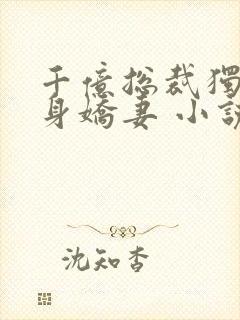 千億總裁獨
身嬌妻 小說
沈知杏